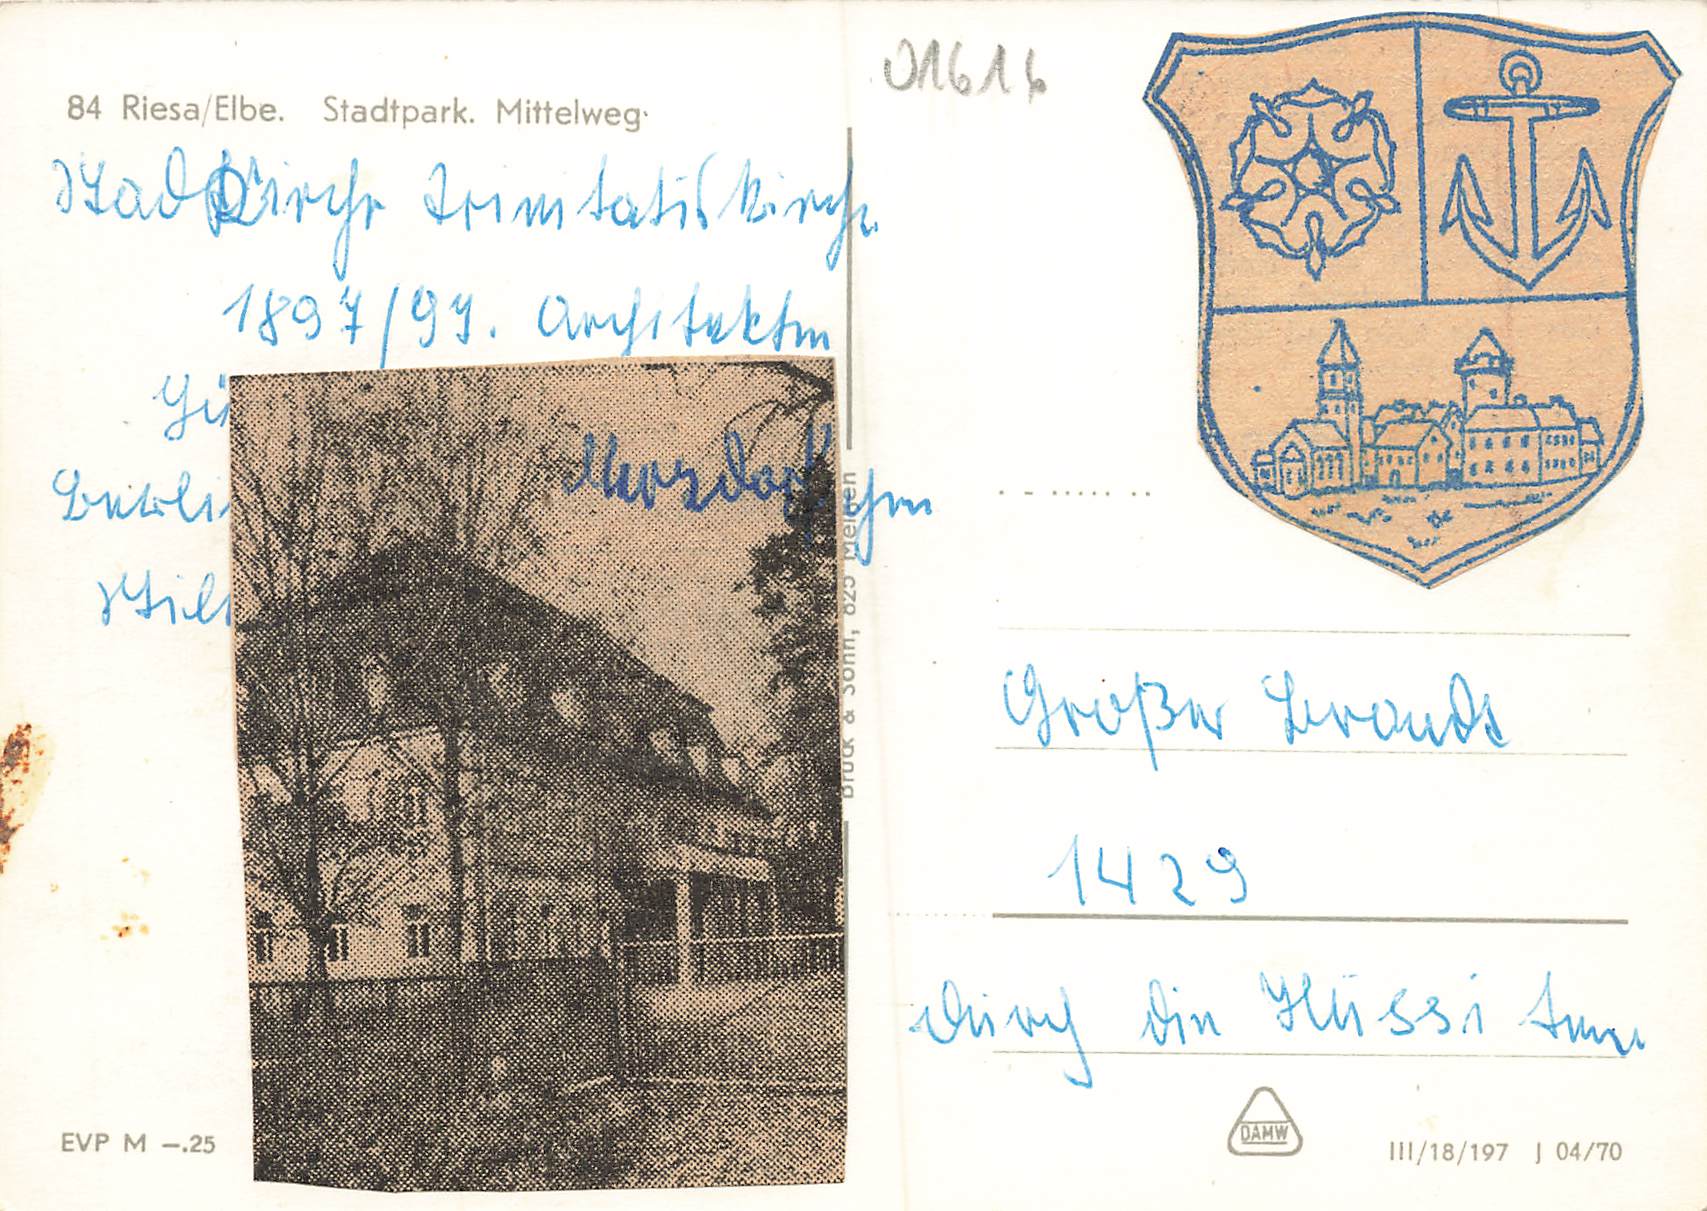 01616
84 Riesa/Elbe. Stadtpark. Mittelweg
Stadtkirche Trinitatiskirche
1897/97. Architekten
Jü
Berli
Merzdorfchen
Stil
Bruck & Sohn, 825 Meißen
Großer Brand
1429
durch die Hussiten
EVP M —.25
DAMW
III/18/197 J 04/70